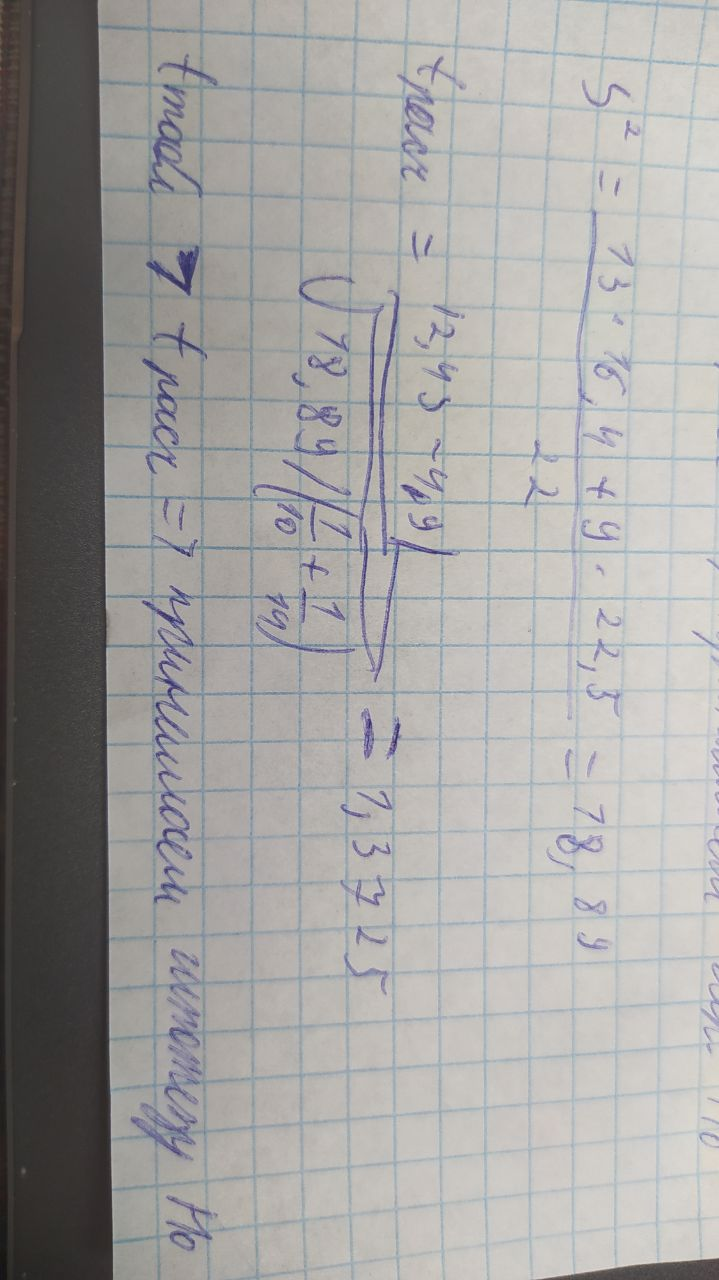 S² = 13 · 16,4 + 9 · 22,5 / 22 = 18,89
t расч = 12,43 - 4,9 / √18,89 (1/10 + 1/14) = 1,3725
t табл > t расч => принимаем гипотезу H0